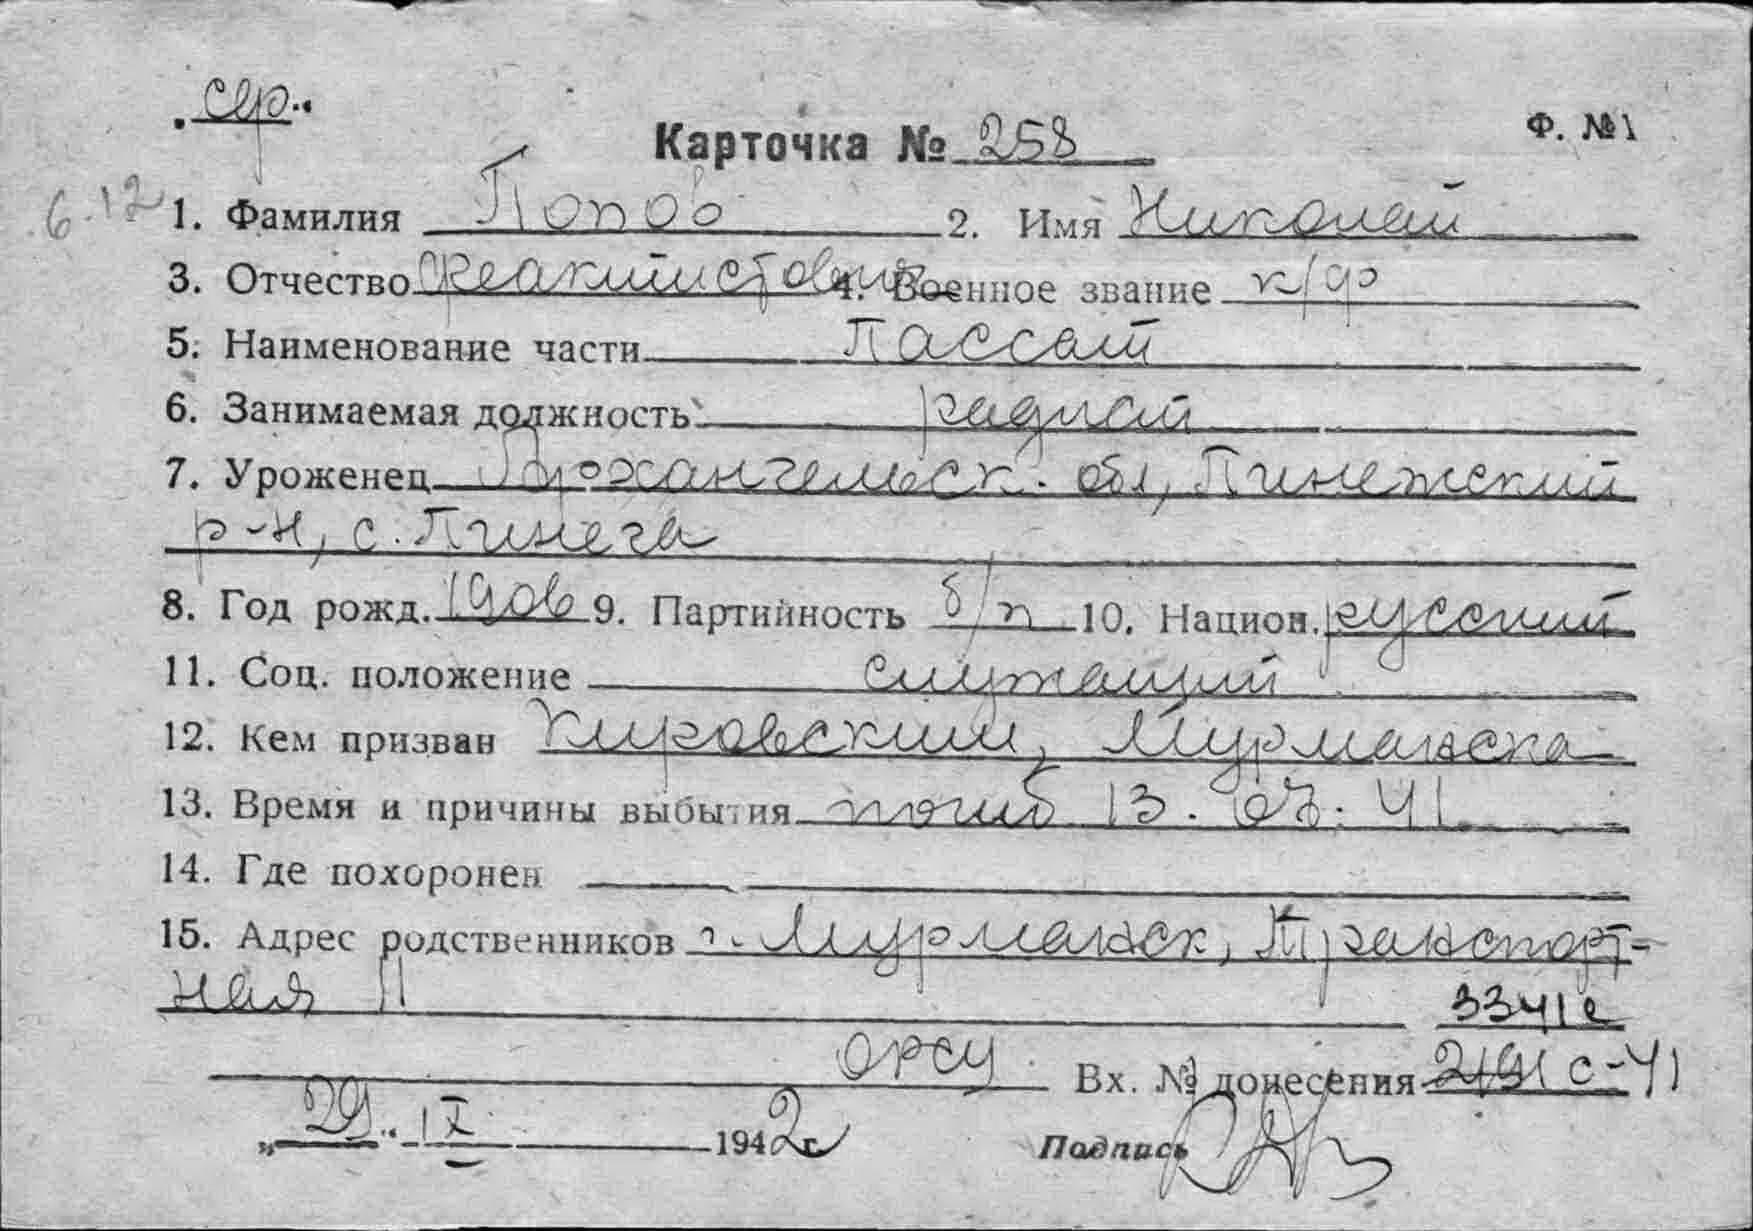 „сер.“
Карточка № 258 Ф. №1
6.12 1. Фамилия Попов 2. Имя Николай
3. Отчество Феактистович 4. Военное звание к/ф
5. Наименование части Пассат
6. Занимаемая должность радист
7. Уроженец Архангельск. обл, Пинежский
р-н, с. Пинега
8. Год рожд. 1906 9. Партийность б/п 10. Национ. русский
11. Соц. положение служащий
12. Кем призван Кировским, Мурманска
13. Время и причины выбытия погиб 13.07.41
14. Где похоронен
15. Адрес родственников г. Мурманск, Транспорт-
ная
3341с
Вх. № донесения с-41
„29“ IX 1942 г.
Подпись